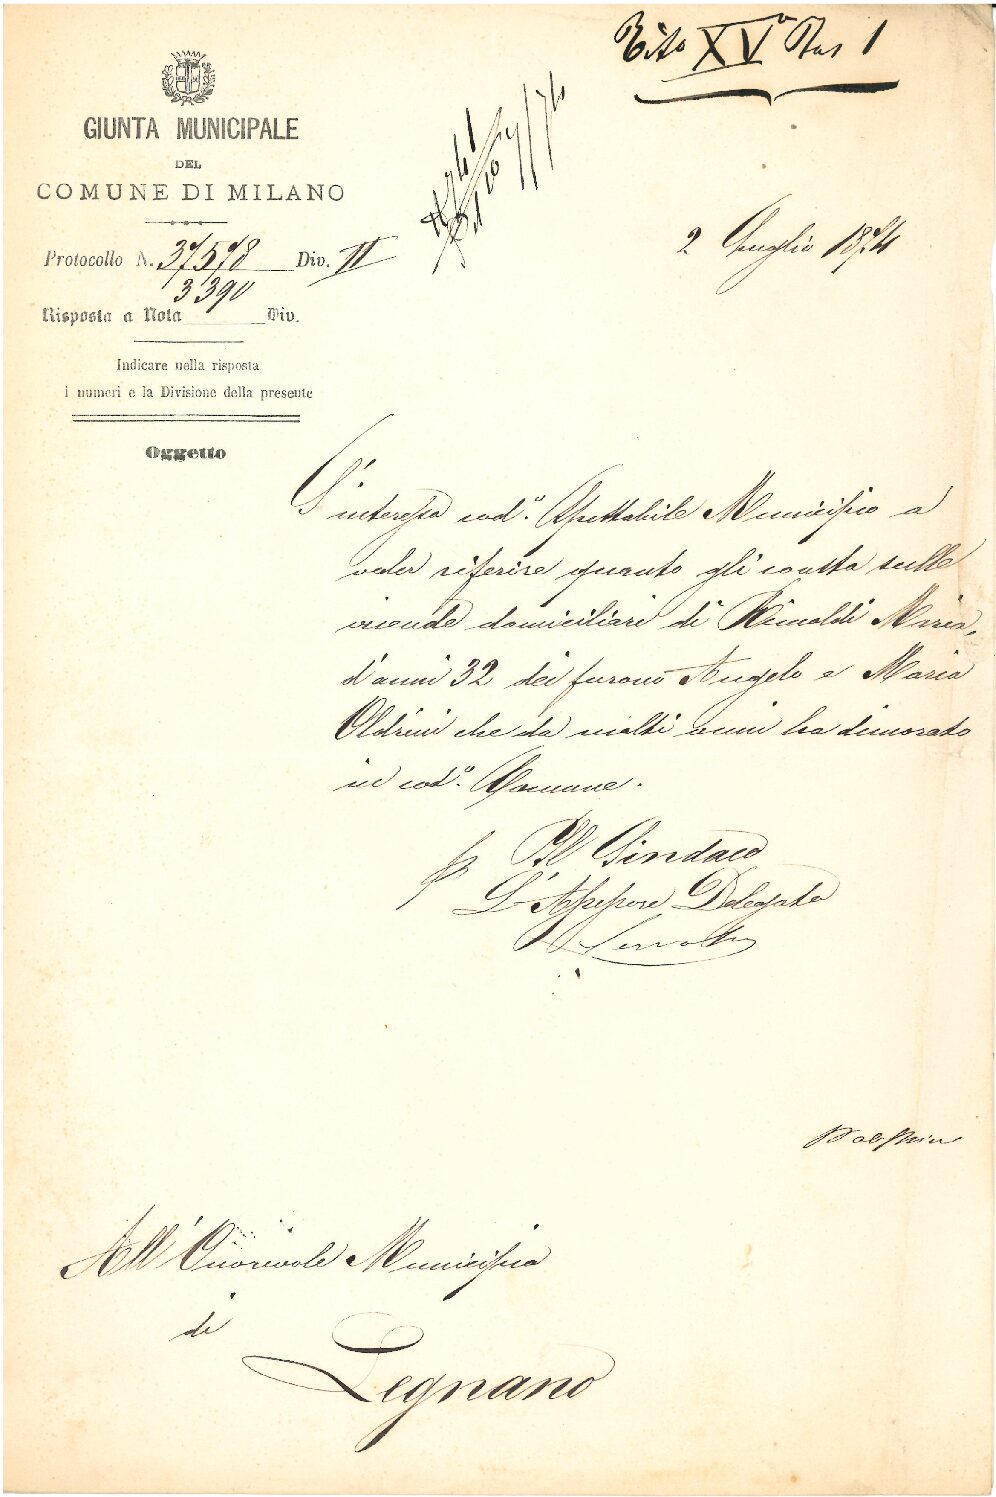 Tito XVº Ras 1
GIUNTA MUNICIPALE
DEL
COMUNE DI MILANO
2 Luglio 1874
Protocollo N. 37578 Div. II
3390
Risposta a Nota Div.
Indicare nella risposta
i numeri e la Divisione della presente
Oggetto
S'interessa cod.º Spettabile Municipio a
voler riferire quanto gli consta sulle
vicende domiciliari di Rimoldi Maria,
d'anni 32 dei furono Angelo e Maria
Oldrini che da molti anni ha dimorato
in cod.º Comune.
p Il Sindaco
L'Assessore Delegato
All'Onorevole Municipio
di
Legnano